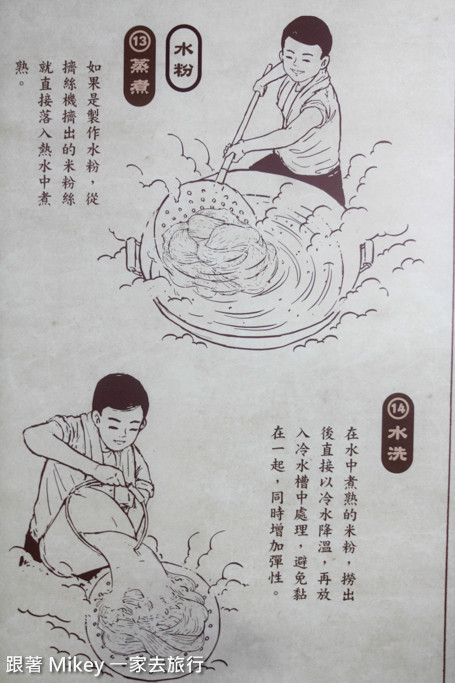 水粉
⑬蒸煮
如果是製作水粉，從
擠絲機擠出的米粉絲
就直接落入熱水中煮
熟。
⑭水洗
在水中煮熟的米粉，撈出
後直接以冷水降溫，再放
入冷水槽中處理，避免黏
在一起，同時增加彈性。
跟著 Mikey 一家去旅行